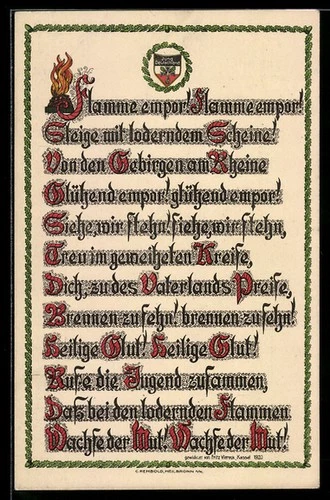 Jung
Deutschland
Flamme empor! Flamme empor!
Steige mit loderndem Scheine!
Von den Gebirgen am Rheine
Glühend empor! glühend empor!
Siehe, wir stehn! siehe, wir stehn,
Treu im geweiheten Kreise,
Dich, zu des Vaterlands Preise,
Brennen zu sehn! brennen zu sehn!
Heilige Glut! Heilige Glut!
Rufe die Jugend zusammen,
Daß bei den lodernden Flammen
Wachse der Mut! Wachse der Mut!
gezeichnet von Fritz Kassel 1920
C. REMBOLD, HEILBRONN A/N.